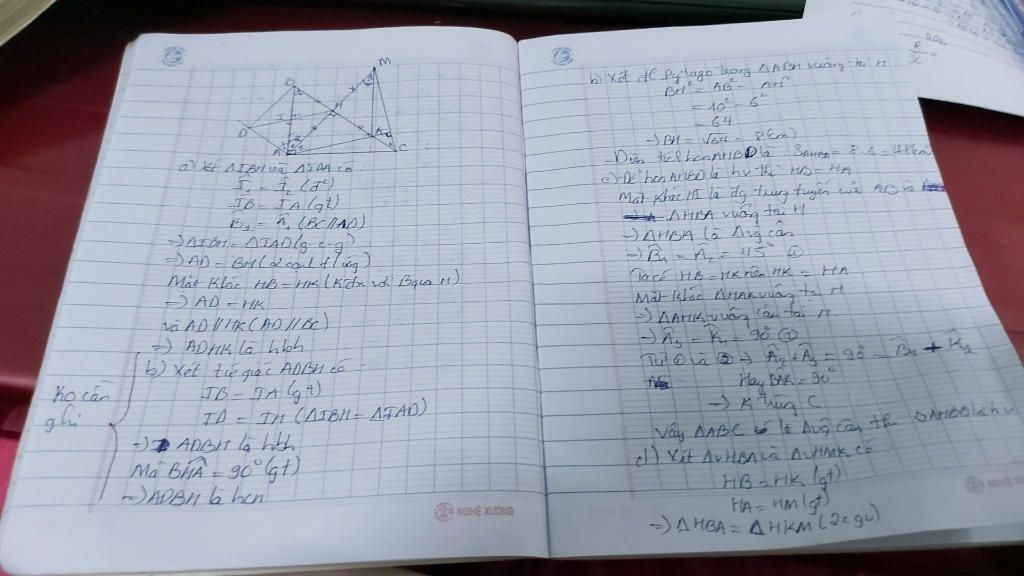 M
D
H
I
A
C
a) Xét ΔIBH và ΔIDA có
I₁ = I₂ (đ²)
IB = IA (gt)
B̂₁ = Â₁ (BC//AD)
=) ΔIBH = ΔIAD (g-c-g)
=) AD = BH (2 cạnh t ứng)
Mặt khác HB = HK (K đx với B qua H)
=) AD = HK
và AD // HK (AD // BC)
=) ADHK là hbh
b) Xét tứ giác ADBH có
IB = IA (gt)
ID = IH (ΔIBH = ΔIAD)
=) ADBH là hbh
Mà BĤA = 90° (gt)
=) ADBH là hcn
Ko cần
ghi
NGHỆ XƯƠNG
b) Xét đl Py-ta-go trong ΔABH vuông tại H
BH² = AB² - AH²
= 10² - 6²
= 64
=) BH = √64 = 8 (cm)
- Diện tích hcn AHBD là S = 8.6 = 48
c) - Để hcn AHBD là hv thì HB = HA
Mặt khác HI là đg trung tuyến của AB và
ΔHBA vuông tại H
=) ΔHBA là Δvg cân
=) B̂₁ = Â₂ = 45° ①
Ta có HB = HK nên HK = HA
Mặt khác ΔHAK vuông tại H
=) ΔAHK vuông cân tại H
=) Â₃ = K̂₁ = 90° ②
Từ ① và ② =) Â₂ + Â₃ = 90° = B̂₁ + K̂
Hay BÂK = 90°
=) K trùng C
Vậy ΔABC là Δvg cân thì AHBD là hv
d) Xét ΔvHBA và ΔvHMK có
HB = HK (gt)
HA = HM (gt)
=) ΔHBA = ΔHKM (2cgv)
NGHỆ XƯƠNG